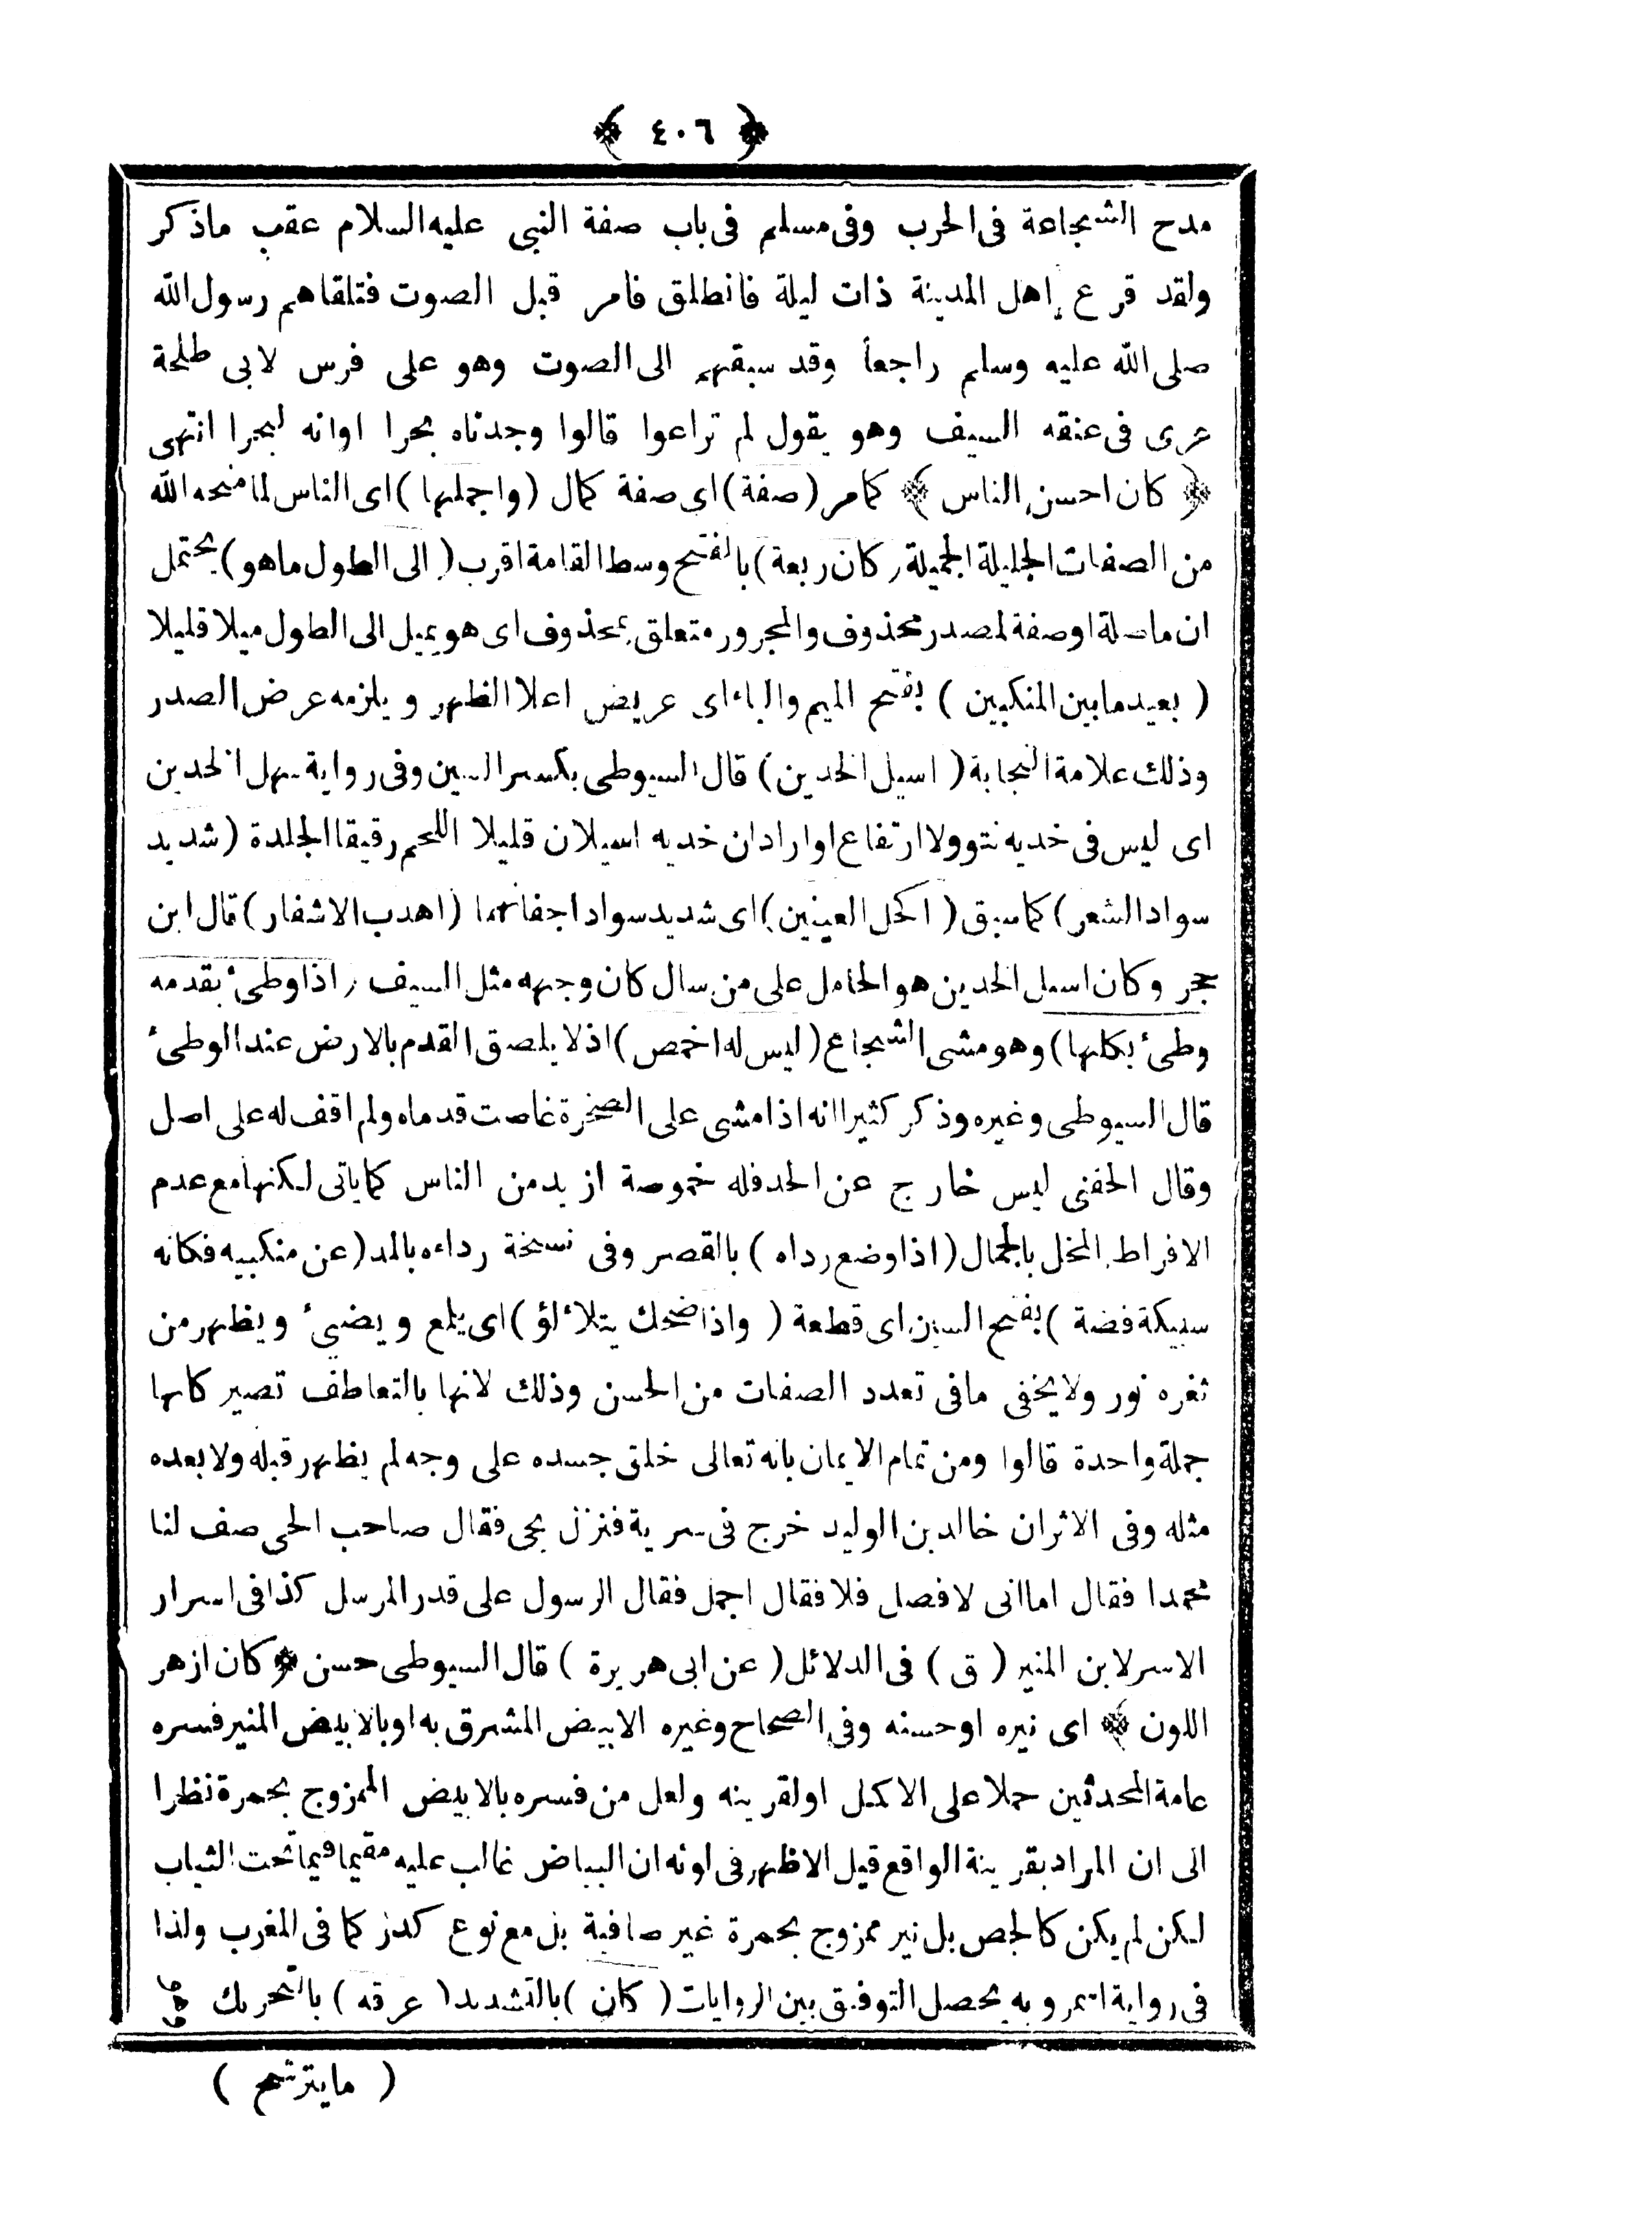 ﴿ ٤٠٦ ﴾
مدح الشجاعة فى الحرب وفى مسلم فى باب صفة النبى عليه السلام عقب ماذكر
ولقد قرع اهل المدينة ذات ليلة فانطلق فامر قبل الصوت فتلقاهم رسول الله
صلى الله عليه وسلم راجعا وقد سبقهم الى الصوت وهو على فرس لابى طلحة
عرى فى عنقه السيف وهو يقول لم تراعوا قالوا وجدناه بحرا اوانه لبحرا انتهى
﴿ كان احسن الناس ﴾ كمامر (صفة) اى صفة كمال (واجملها) اى الناس لما منحه الله
من الصفات الجليلة الجميلة (كان ربعة) بالفتح وسط القامة اقرب (الى الطول ماهو) يحتمل
ان ماصلة اوصفة لمصدر محذوف والمجرور متعلق بمحذوف اى هو يميل الى الطول ميلا قليلا
( بعيد مابين المنكبين ) بفتح الميم والباء اى عريض اعلا الظهر ويلزمه عرض الصدر
وذلك علامة النجابة ( اسيل الخدين ) قال السيوطى بكسر السين وفى رواية سهل الخدين
اى ليس فى خديه نتوولا ارتفاع اواراد ان خديه اسيلان قليلا اللحم رقيقا الجلدة (شديد
سواد الشعر ) كماسبق ( اكحل العينين ) اى شديد سواد اجفانهما (اهدب الاشفار) قال ابن
حجر وكان اسيل الخدين هو الحامل على من سال كان وجهه مثل السيف (اذا وطئ بقدمه
وطئ بكلها) وهو مشى الشجاع (ليس له اخمص) اذ لا يلصق القدم بالارض عند الوطئ
قال السيوطى وغيره وذكر كثيرا انه اذا مشى على الصخرة غاصت قدماه ولم اقف له على اصل
وقال الحفنى ليس خارج عن الحد فله خموصة ازيد من الناس كما ياتى لكنها مع عدم
الافراط المخل بالجمال (اذا وضع رداه ) بالقصر وفى نسخة رداءه بالمد (عن منكبيه فكانه
سبيكة فضة ) بفتح السين اى قطعة ( واذا ضحك يتلائلؤ ) اى يلمع ويضئ ويظهر من
ثغره نور ولا يخفى مافى تعدد الصفات من الحسن وذلك لانها بالتعاطف تصير كانها
جملة واحدة قالوا ومن تمام الايمان بانه تعالى خلق جسده على وجه لم يظهر قبله ولا بعده
مثله وفى الاثر ان خالد بن الوليد خرج فى سرية فنزل بحى فقال صاحب الحى صف لنا
محمدا فقال اما انى لافصل فلا فقال اجمل فقال الرسول على قدر المرسل كذا فى اسرار
الاسر لابن المنير ( ق ) فى الدلائل ( عن ابى هريرة ) قال السيوطى حسن ﴿ كان ازهر
اللون ﴾ اى نيره اوحسنه وفى الصحاح وغيره الابيض المشرق به اوبالابيض المنير فسره
عامة المحدثين حملا على الاكمل اولقرينه ولعل من فسره بالابيض الممزوج بحمرة نظرا
الى ان المراد بقرينة الواقع قيل الاظهر فى لونه ان البياض غالب عليه مقيما فيما تحت الثياب
لكن لم يكن كالجص بل نير ممزوج بحمرة غير صافية بل مع نوع كدر كما فى المغرب ولذا
فى رواية اسمر وبه يحصل التوفيق بين الروايات (كان ) بالتشديد ( عرقه ) بالتحريك
( مايترشح )